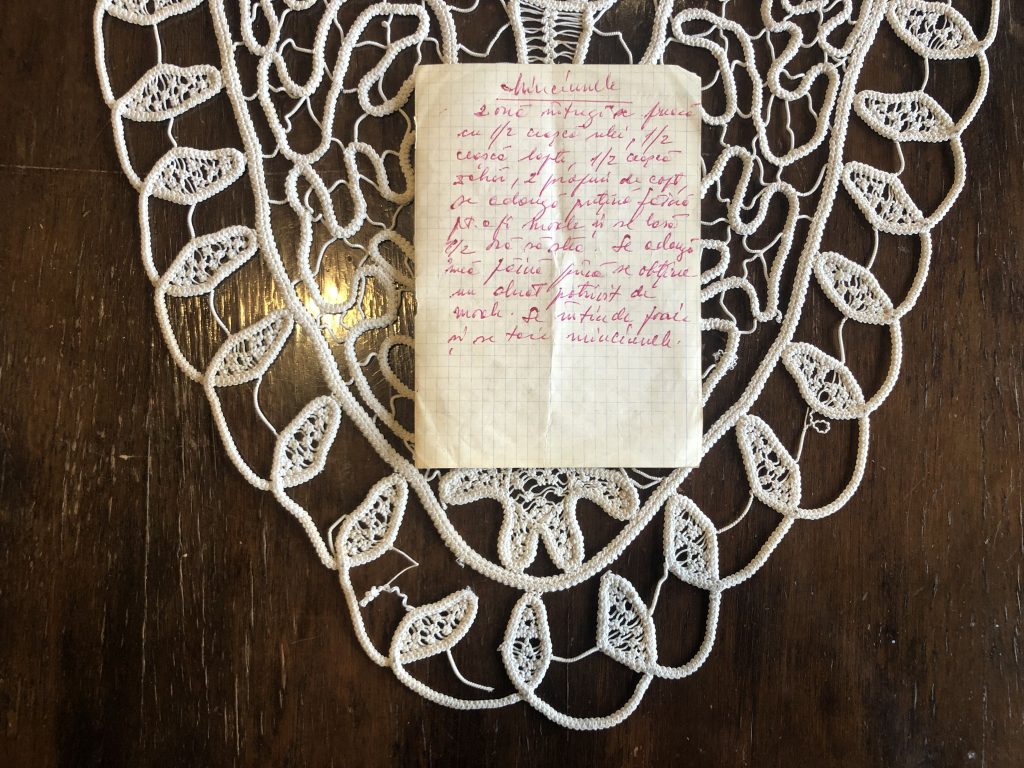 Minciunele
2 ouă întregi se freacă
cu 1/2 ceașcă ulei, 1/2
ceașcă lapte, 1/2 ceașcă
zahăr, 2 prafuri de copt,
se adaugă puțină făină
pt. a fi moale și se lasă
1/2 oră să stea. Se adaugă
încă făină până se obține
un aluat potrivit de
moale. Se întinde foaie
și se taie minciunele.